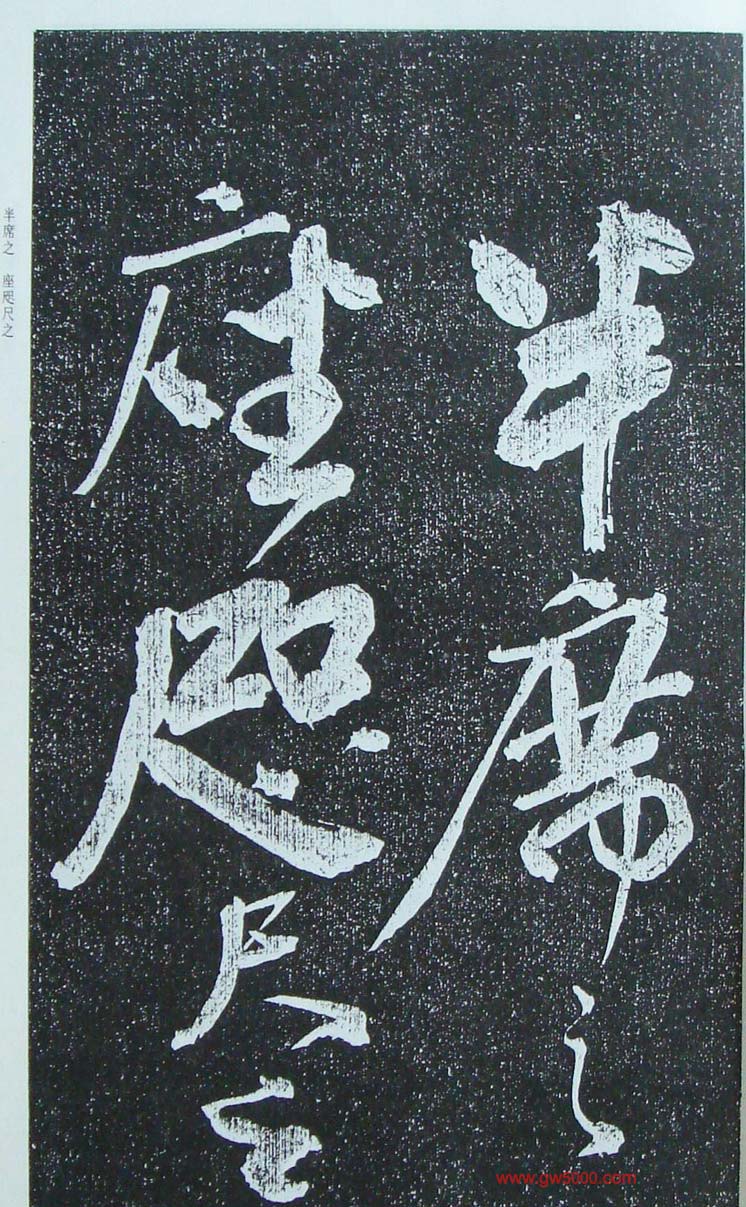 半席之
座咫尺之
半席之 座咫尺之
www.gw5000.com